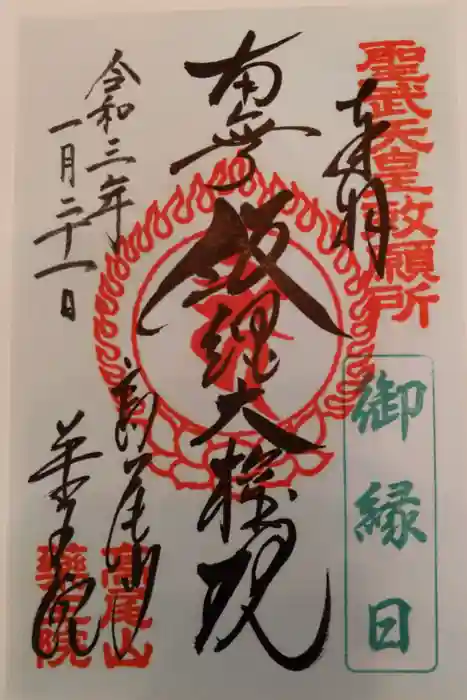 聖武天皇敕願所
奉拝
御縁日
南無飯縄大権現
令和三年
一月二十一日
高尾山
薬王院
高尾山
藥王院